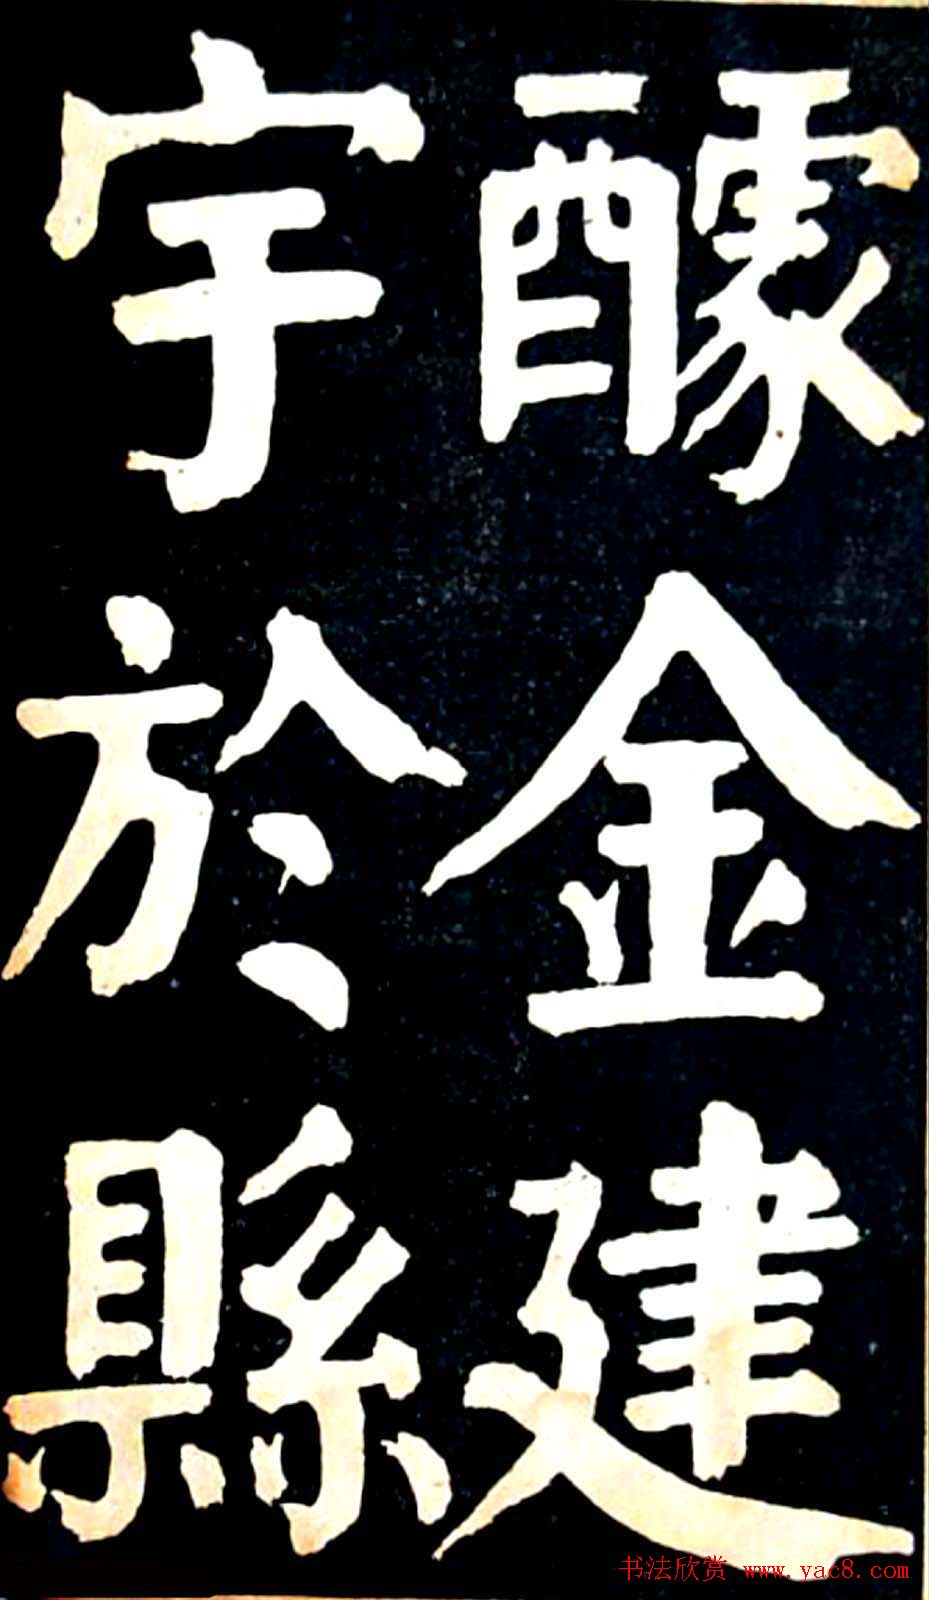 醵金建
宇於縣
书法欣赏 www.yac8.com